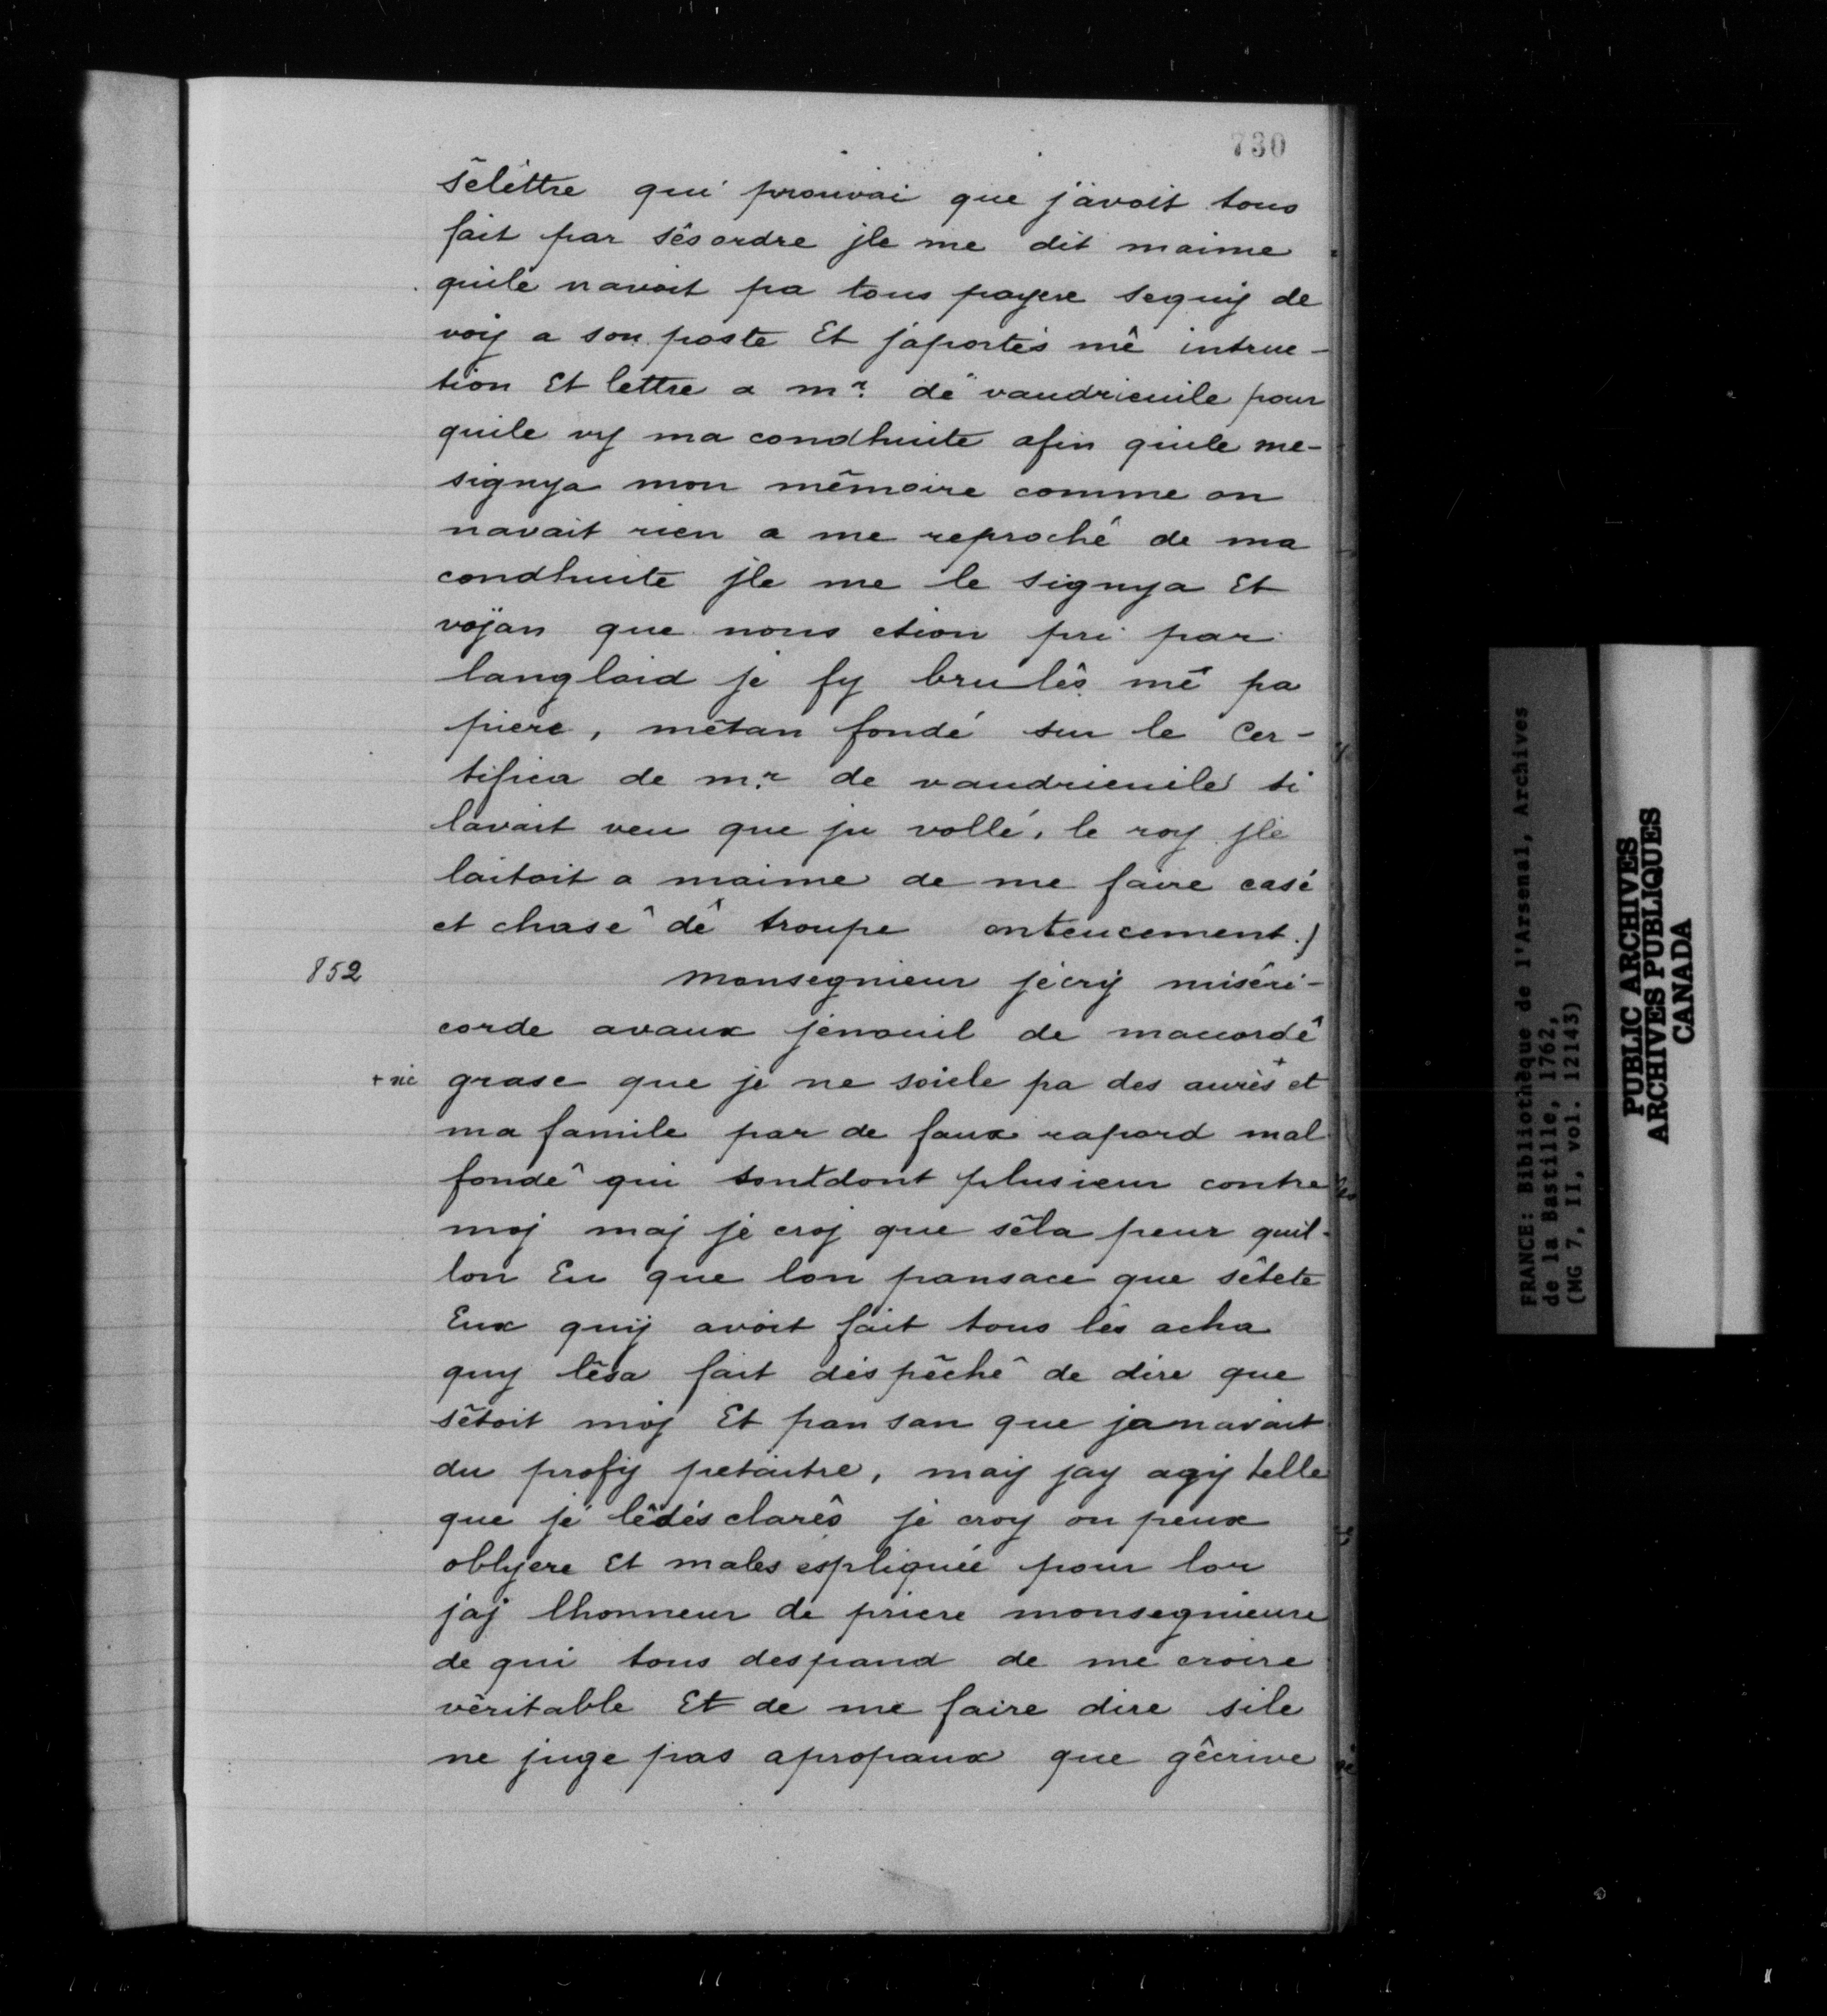 730
sêlêttre qui prouvai que j'avoit tous
fait par sês ordre jle me dit maime
quile navoit pa tous payere sequij de
voij a son poste Et j'aportês mê intruc-
tion Et lettre a mr. de vaudrieuile pour
quile vy ma condhuite afin quile me-
signya mon mêmoire comme on
navait rien a me reprochê de ma
condhuite jle me le signya Et
vojan que nous etion pri par
langlaid je fy brulês mê pa
piere, mêtan fondé sur le Cer-
tifica de mr. de vaudrieuile si
lavait veu que ju vollé, le roy jle
laitoit a maime de me faire casé
et chasê dê troupe onteucement.)
852
monsegnieur jêcrij misêri-
corde avaux jenouil de macordê
+ sic grase que je ne soiele pa des aurês + et
ma famile par de faux rapord mal
fondê qui sontdont plusieur contre
moj maj je croj que sêla peur quil-
lon Eu que lon pansace que sêtete
Eux quij avoit fait tous lês acha
quy lêsa fait dêspêchê de dire que
sêtoit moj Et pansan que janavait
du profij petaitre, maij jay agij telle
que je lêdêsclarês je croy on peux
oblyere Et males espliquée pour lor
jaj lhonneur de priere monsegnieure
de qui tous despand de me croire
vêritable Et de me faire dire sile
ne juge pas apropaux que gêcrive
FRANCE: Bibliothèque de l'Arsenal, Archives
de la Bastille, 1762,
(MG 7, II, vol. 12143)
PUBLIC ARCHIVES
ARCHIVES PUBLIQUES
CANADA